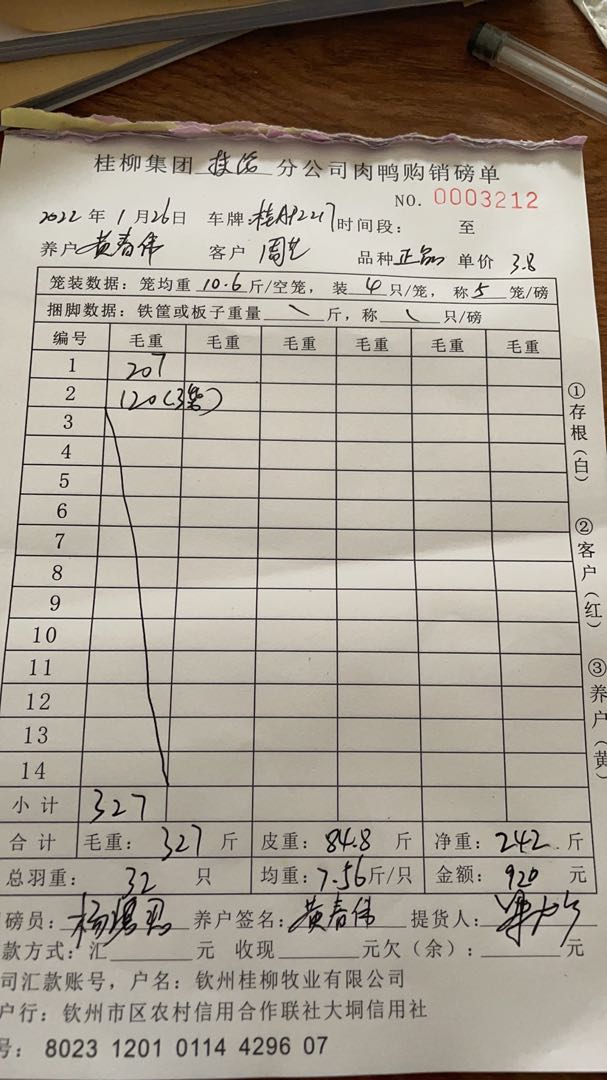 桂柳集团 分公司肉鸭购销磅单
NO. 0003212
2022年1月26日 车牌:桂 时间段: 至
养户 黄春伟 客户 周 品种 正品 单价 3.8
笼装数据:笼均重 10.6 斤/空笼,装 4 只/笼,称 5 笼/磅
捆脚数据:铁筐或板子重量 \ 斤,称 \ 只/磅
编号 毛重 毛重 毛重 毛重 毛重 毛重
1 207
2 120(3笼)
3
4
5
6
7
8
9
10
11
12
13
14
小计 327
合计 毛重: 327 斤 皮重: 84.8 斤 净重: 242 斤
总羽重: 32 只 均重: 7.56 斤/只 金额: 920 元
磅员: 养户签名: 黄春伟 提货人:
款方式:汇 元 收现 元欠(余): 元
司汇款账号,户名:钦州桂柳牧业有限公司
户行:钦州市区农村信用合作联社大垌信用社
号: 8023 1201 0114 4296 07
①存根(白)
②客户(红)
③养户(黄